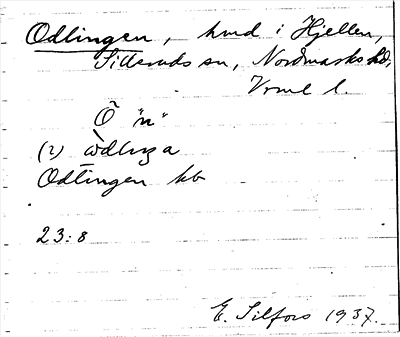 Odlingen, hmd i Hjellen,
Silleruds sn, Nordmarks hd,
Vrml l.
Ö "n"
(2)
Odlingen kb
23:8
E. Silfors 1937.